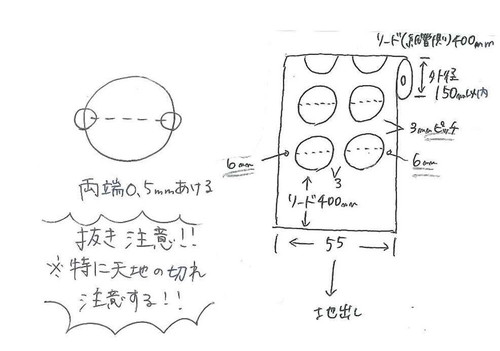 両端0.5mmあける
抜き注意!!
※特に天地の切れ
注意する!!
リード(紙管側)400mm
外径
150mm以内
3mmピッチ
6mm
6mm
3
リード400mm
55
地出し